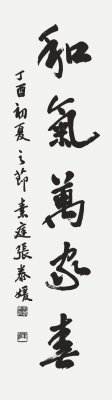 和氣萬家春
丁酉初夏之節素庭張恭媛